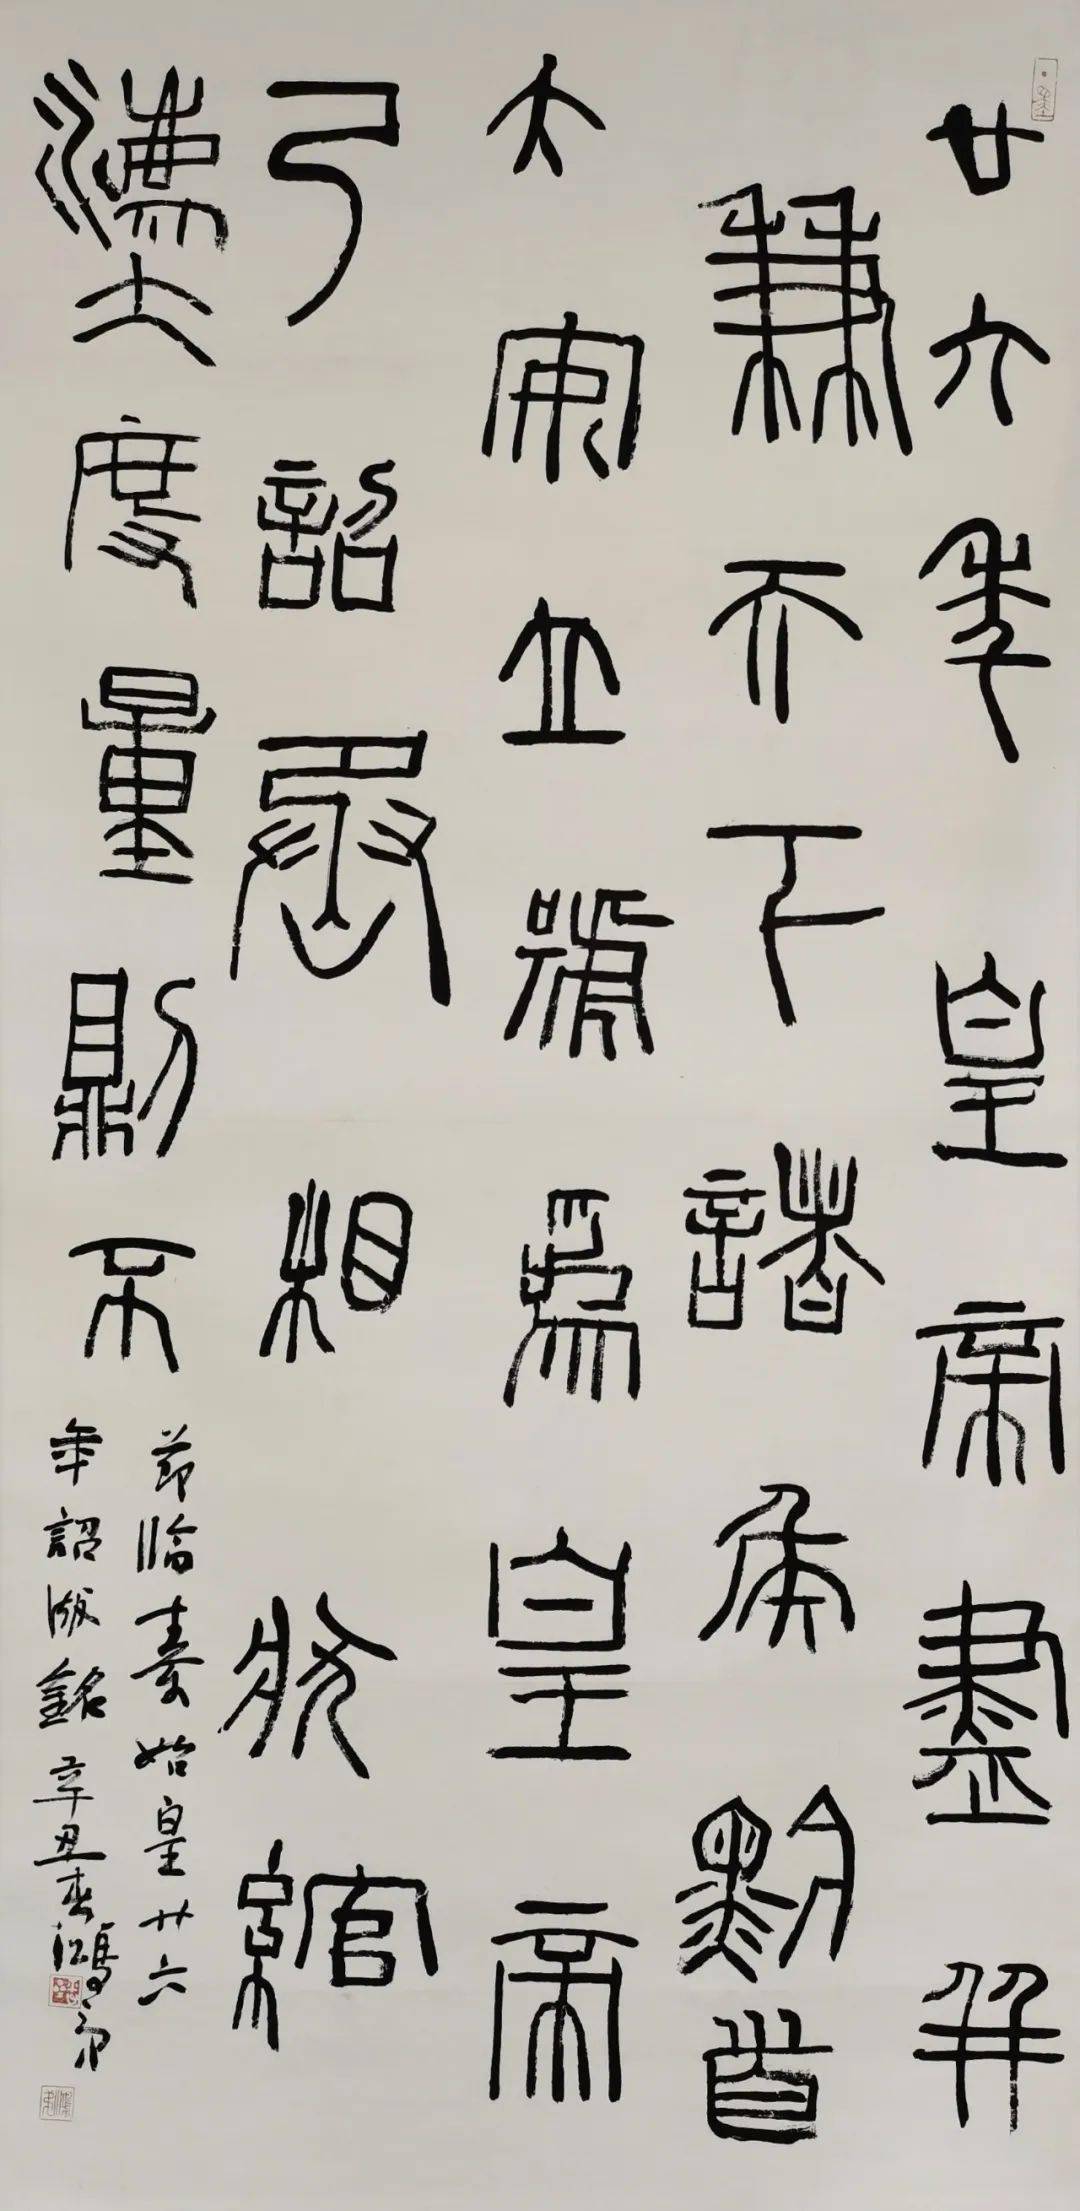 廿六年皇帝盡并
兼天下諸侯黔首
大安立號為皇帝
乃詔丞相狀綰
灋度量則不
節臨秦始皇廿六
年詔版銘辛丑春鴻